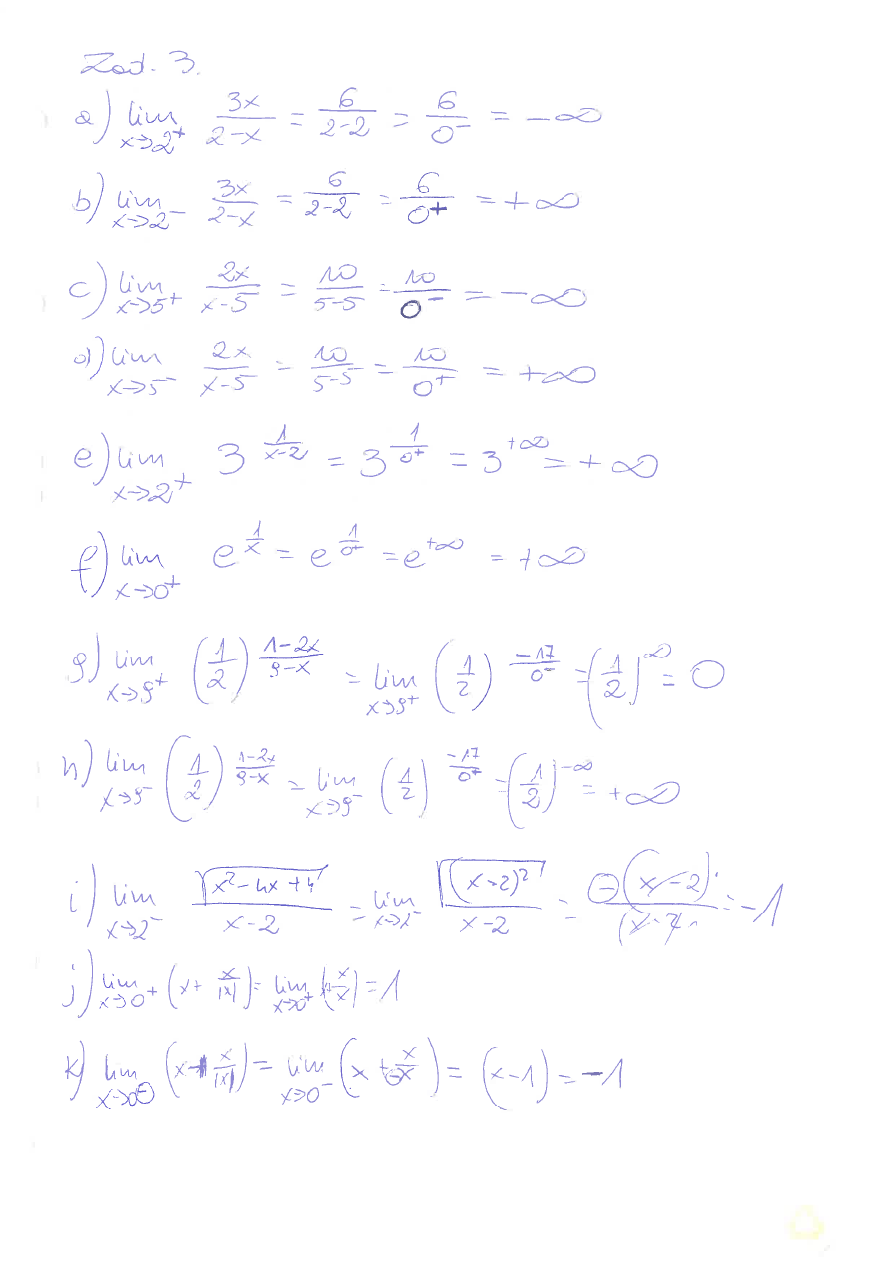 Zad. 3.
a) lim x→2⁺ 3x/(2-x) = 6/(2-2) = 6/0⁻ = -∞
b) lim x→2⁻ 3x/(2-x) = 6/(2-2) = 6/0⁺ = +∞
c) lim x→5⁺ 2x/(x-5) = 10/(5-5) = 10/0⁻ = -∞
d) lim x→5⁻ 2x/(x-5) = 10/(5-5) = 10/0⁺ = +∞
e) lim x→2⁺ 3^(1/(x-2)) = 3^(1/0⁺) = 3^(+∞) = +∞
f) lim x→0⁺ e^(1/x) = e^(1/0⁺) = e^(+∞) = +∞
g) lim x→9⁺ (1/2)^((1-2x)/(9-x)) = lim x→9⁺ (1/2)^(-17/0⁻) = (1/2)^∞ = 0
h) lim x→9⁻ (1/2)^((1-2x)/(9-x)) = lim x→9⁻ (1/2)^(-17/0⁺) = (1/2)^(-∞) = +∞
i) lim x→2⁻ √(x²-4x+4)/(x-2) = lim x→2⁻ √((x-2)²)/(x-2) = -(x-2)/(x-2) = -1
j) lim x→0⁺ (x + x/|x|) = lim x→0⁺ (x + x/x) = 1
k) lim x→0⁻ (x + x/|x|) = lim x→0⁻ (x + x/-x) = (x-1) = -1